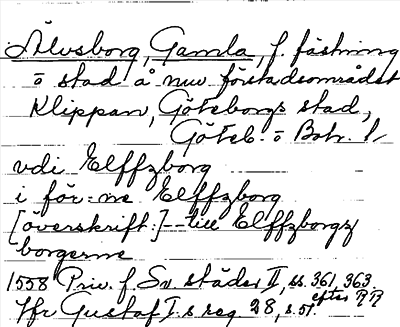 Älvsborg, Gamla, f. fästning
o stad å nuv. förstadsområdet
Klippan, Göteborgs stad,
Göteb. o Boh. l
vdi Elffzborg
i för:ne Elffzborg
[överskrift:] -- till Elffzborgz
borgerne
1558 Priv. f. Sv. städer II, ss. 361, 363.
Hfr Gustaf I.s reg. 28, s. 57. efter RR